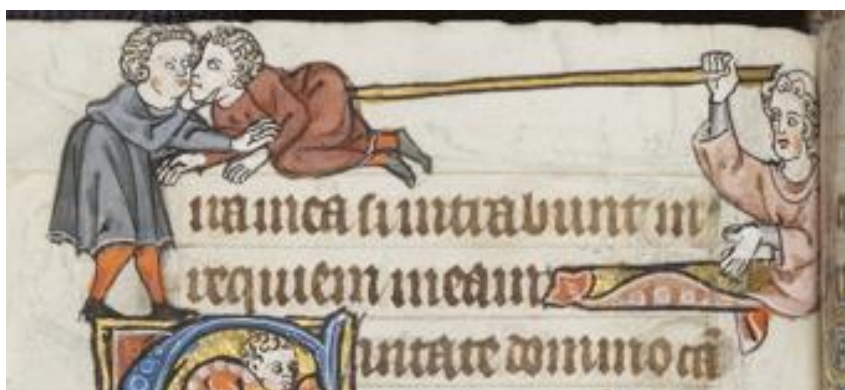 ira mea si intrabunt in
requiem meam
Cantate domino cā